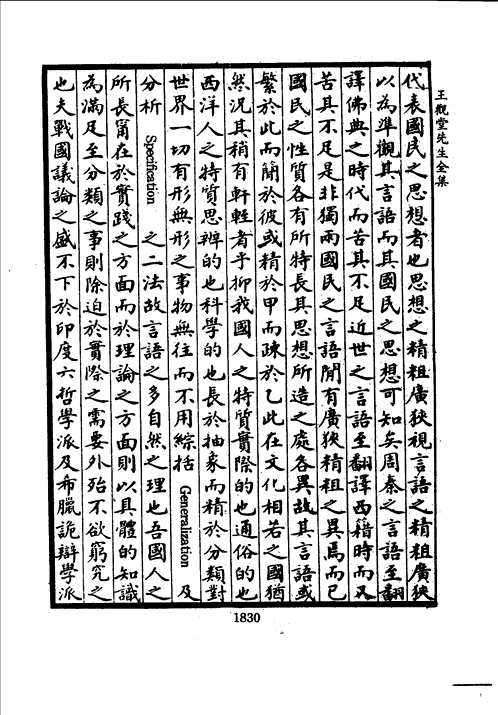 王觀堂先生全集
代表國民之思想者也思想之精粗廣狹視言語之精粗廣狹
以為準觀其言語而其國民之思想可知矣周秦之言語至翻
譯佛典之時代而苦其不足近世之言語至翻譯西籍時而又
苦其不足是非獨兩國民之言語間有廣狹精粗之異焉而已
國民之性質各有所特長其思想所造之處各異故其言語或
繁於此而簡於彼或精於甲而疎於乙此在文化相若之國猶
然況其稍有軒輊者乎抑我國人之特質實際的也通俗的也
西洋人之特質思辨的也科學的也長於抽象而精於分類對
世界一切有形無形之事物無往而不用綜括 Generalization 及
分析 Specification 之二法故言語之多自然之理也吾國人之
所長甯在於實踐之方面而於理論之方面則以具體的知識
為滿足至分類之事則除迫於實際之需要外殆不欲窮究之
也夫戰國議論之盛不下於印度六哲學派及希臘詭辯學派
1830